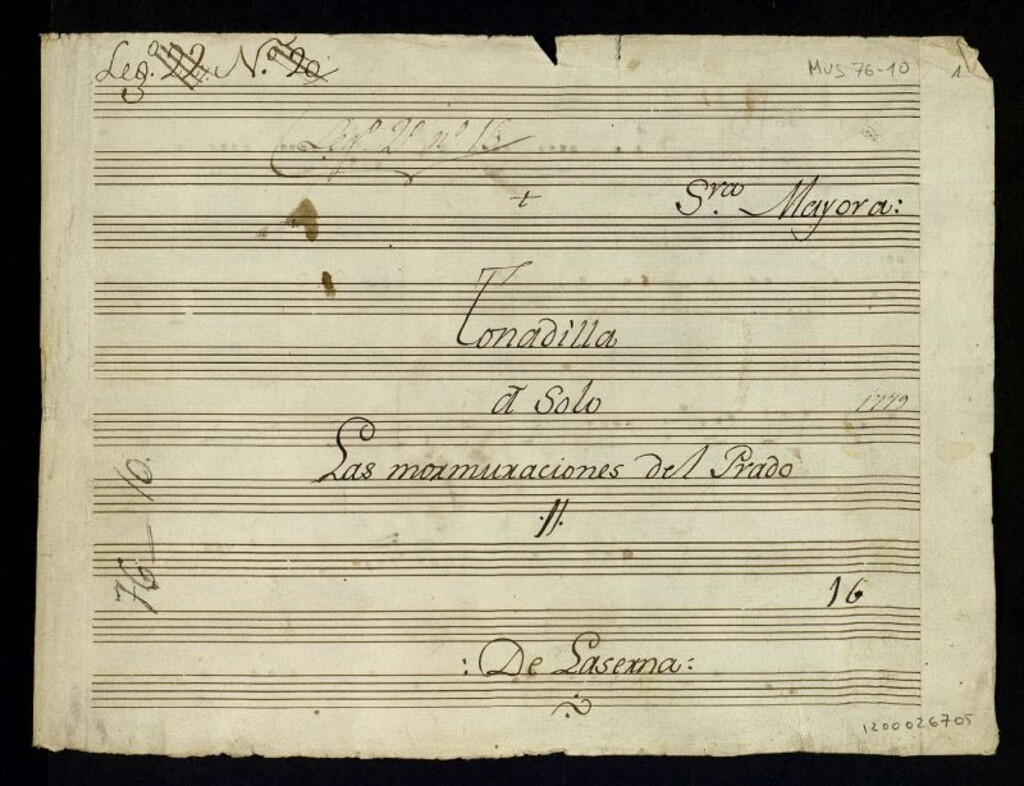 Leg.º 22. N.º 20
MUS 76-10
1
Leg.º 2º nº 15
Sra Mayora:
Tonadilla
a Solo
1779
Las mormuraciones del Prado
.//.
76-10
16
: De Laserna:
1200026705